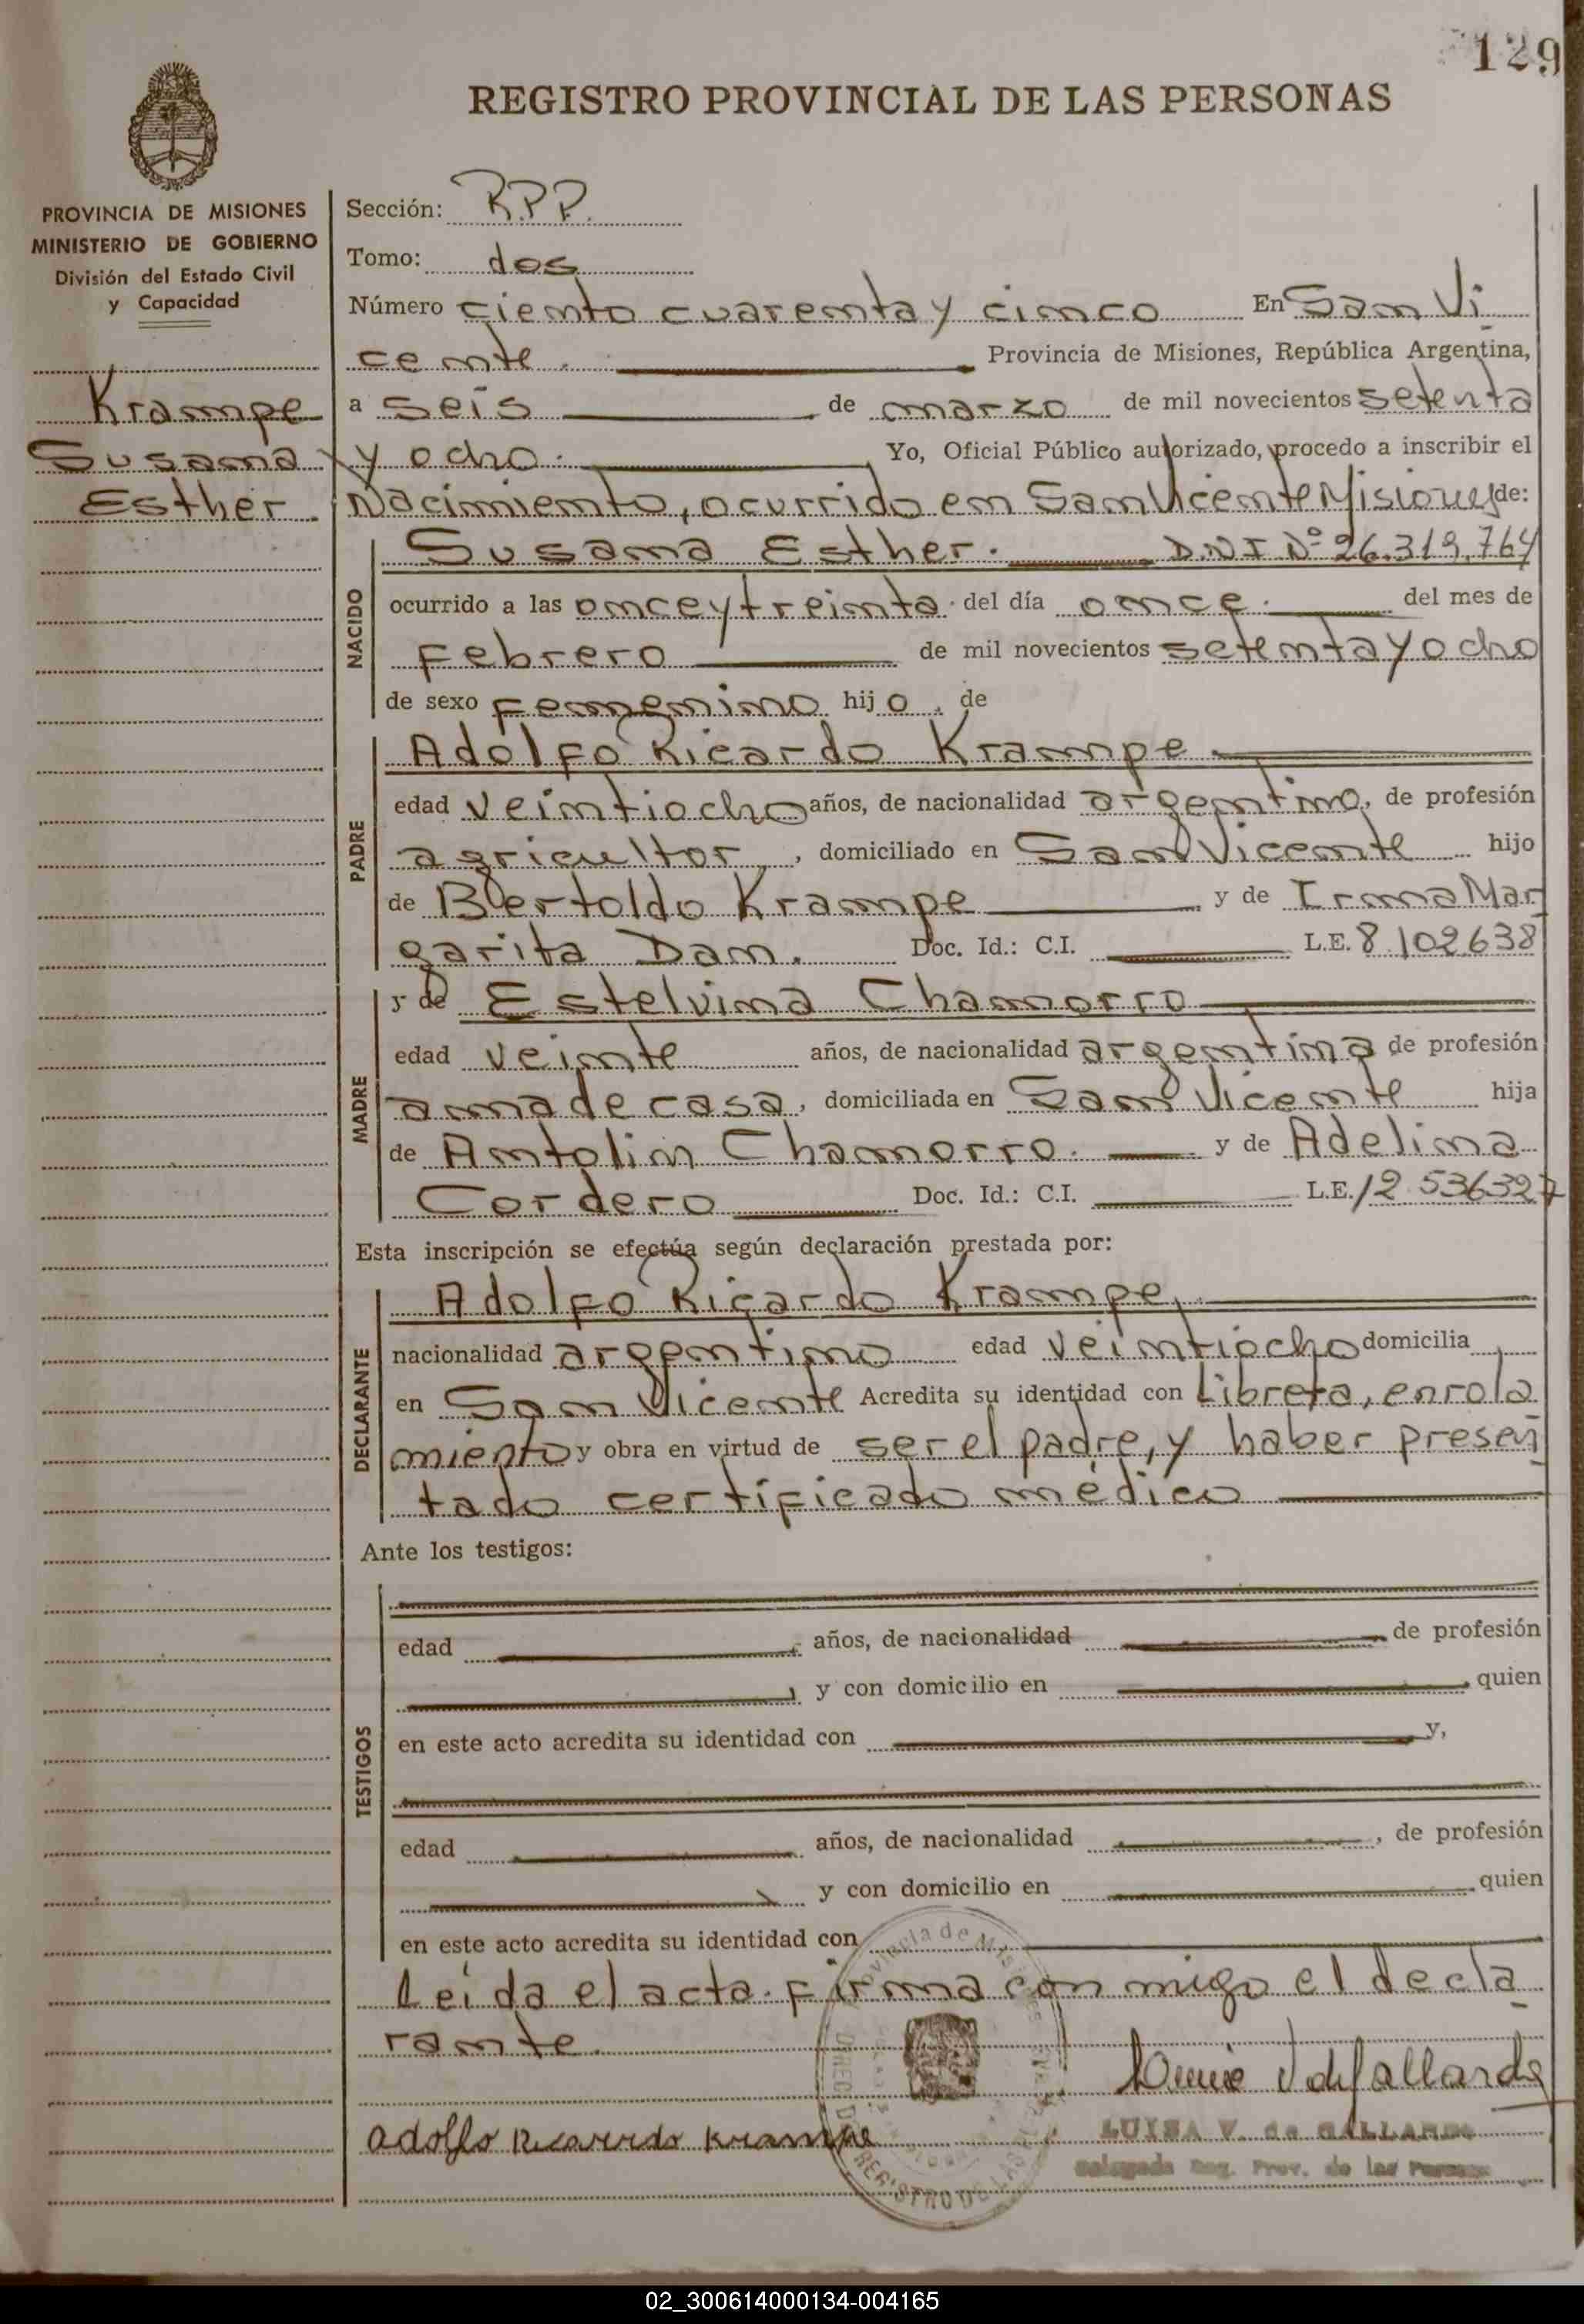 129
REGISTRO PROVINCIAL DE LAS PERSONAS
PROVINCIA DE MISIONES
MINISTERIO DE GOBIERNO
División del Estado Civil
y Capacidad
Krampe
Susana
Esther
Sección: R.P.P.
Tomo: dos
Número ciento cuarenta y cinco En San Vi
cente. Provincia de Misiones, República Argentina,
a seis de marzo de mil novecientos setenta
y ocho. Yo, Oficial Público autorizado, procedo a inscribir el
Nacimiento, ocurrido en San Vicente Misiones de:
NACIDO
Susana Esther. D.N.I Nº 26.319.764
ocurrido a las once y treinta. del día once. del mes de
Febrero de mil novecientos setenta y ocho
de sexo femenino hijo, de
PADRE
Adolfo Ricardo Krampe
edad veintiocho años, de nacionalidad argentino, de profesión
agricultor, domiciliado en San Vicente hijo
de Bertoldo Krampe y de Irma Mar
garita Dam. Doc. Id.: C.I. L.E. 8.102.638
MADRE
y de Estelvina Chamorro
edad veinte años, de nacionalidad argentina de profesión
ama de casa, domiciliada en San Vicente hija
de Antolin Chamorro. y de Adelina
Cordero Doc. Id.: C.I. L.E. 12.536327
Esta inscripción se efectúa según declaración prestada por:
DECLARANTE
Adolfo Ricardo Krampe,
nacionalidad argentino edad veintiocho domicilia
en San Vicente Acredita su identidad con Libreta, enrola
miento y obra en virtud de ser el padre, y haber presen
tado certificado médico
Ante los testigos:
TESTIGOS
edad años, de nacionalidad de profesión
y con domicilio en quien
en este acto acredita su identidad con y,
edad años, de nacionalidad , de profesión
y con domicilio en quien
en este acto acredita su identidad con
Leída el acta. firma con migo el decla
rante.
Adolfo Ricardo Krampe
LUISA V. de GALLARDO
Delegada Reg. Prov. de las Personas
02_300614000134-004165